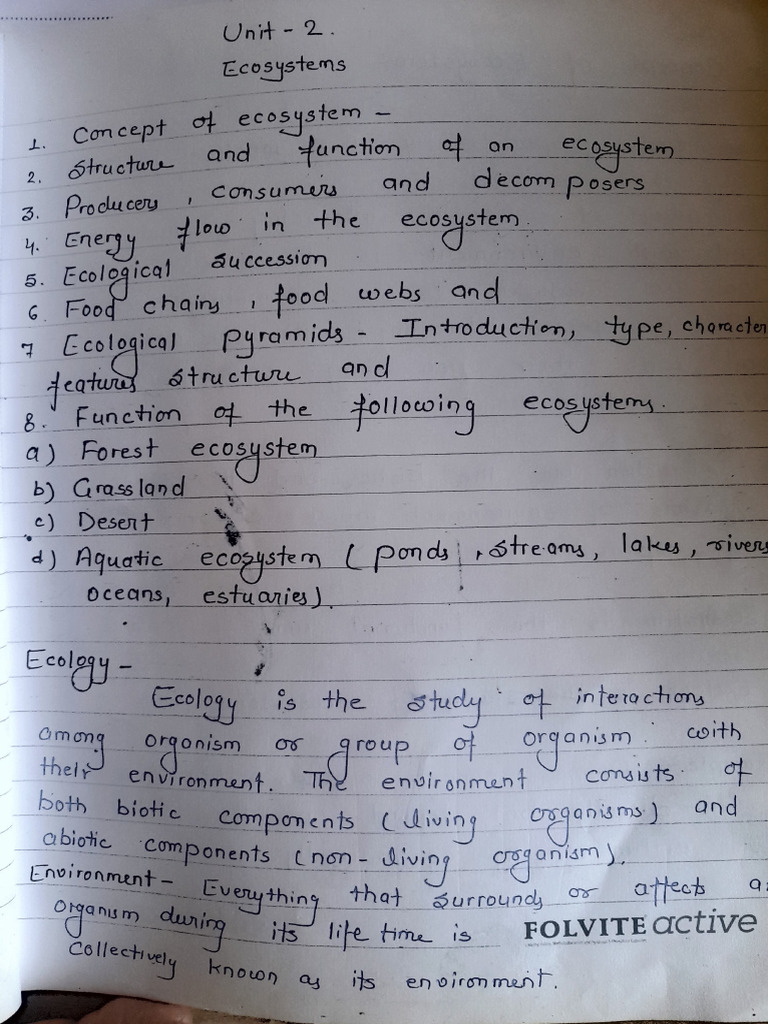 Unit - 2.
Ecosystems
1. Concept of ecosystem -
2. Structure and function of an ecosystem
3. Producers, consumers and decomposers
4. Energy flow in the ecosystem
5. Ecological succession
6 Food chains, food webs and
7 Ecological pyramids - Introduction, type, character
features structure and
8. Function of the following ecosystems.
a) Forest ecosystem
b) Grassland
c) Desert
d) Aquatic ecosystem (ponds, streams, lakes, rivers
oceans, estuaries).
Ecology -
Ecology is the study of interactions
among organism or group of organism with
their environment. The environment consists of
both biotic components (living organisms) and
abiotic components (non-living organism).
Environment - Everything that surrounds or affects
organism during its life time is
FOLVITE active
collectively known as its environment.